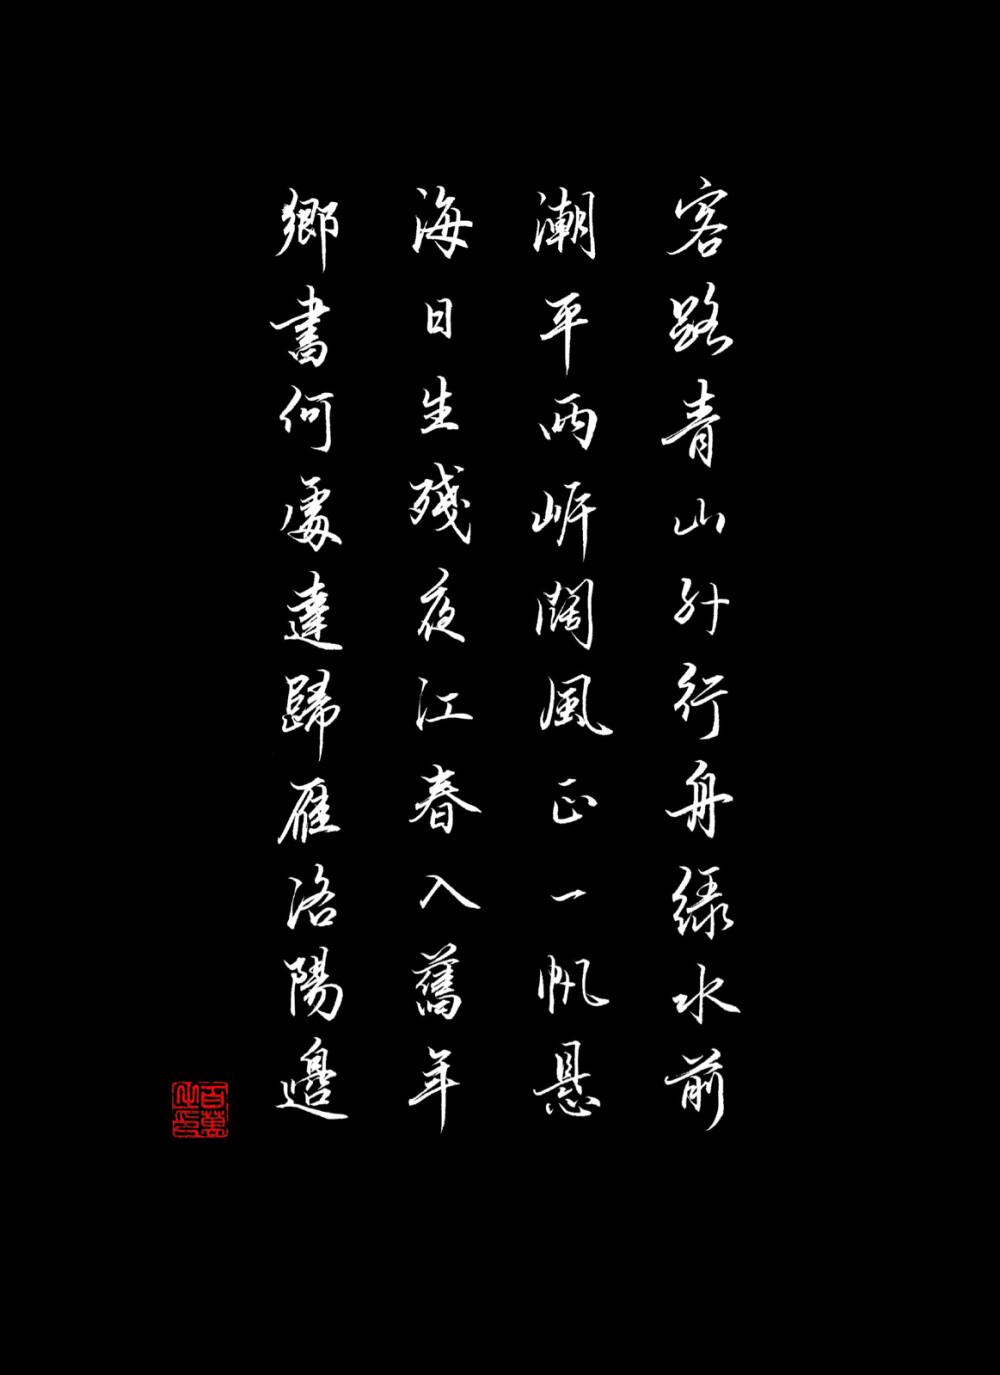 客路青山外行舟緑水前
潮平兩岍闊風正一帆懸
海日生殘夜江春入舊年
鄉書何處達歸雁洛陽邊
百萬之印